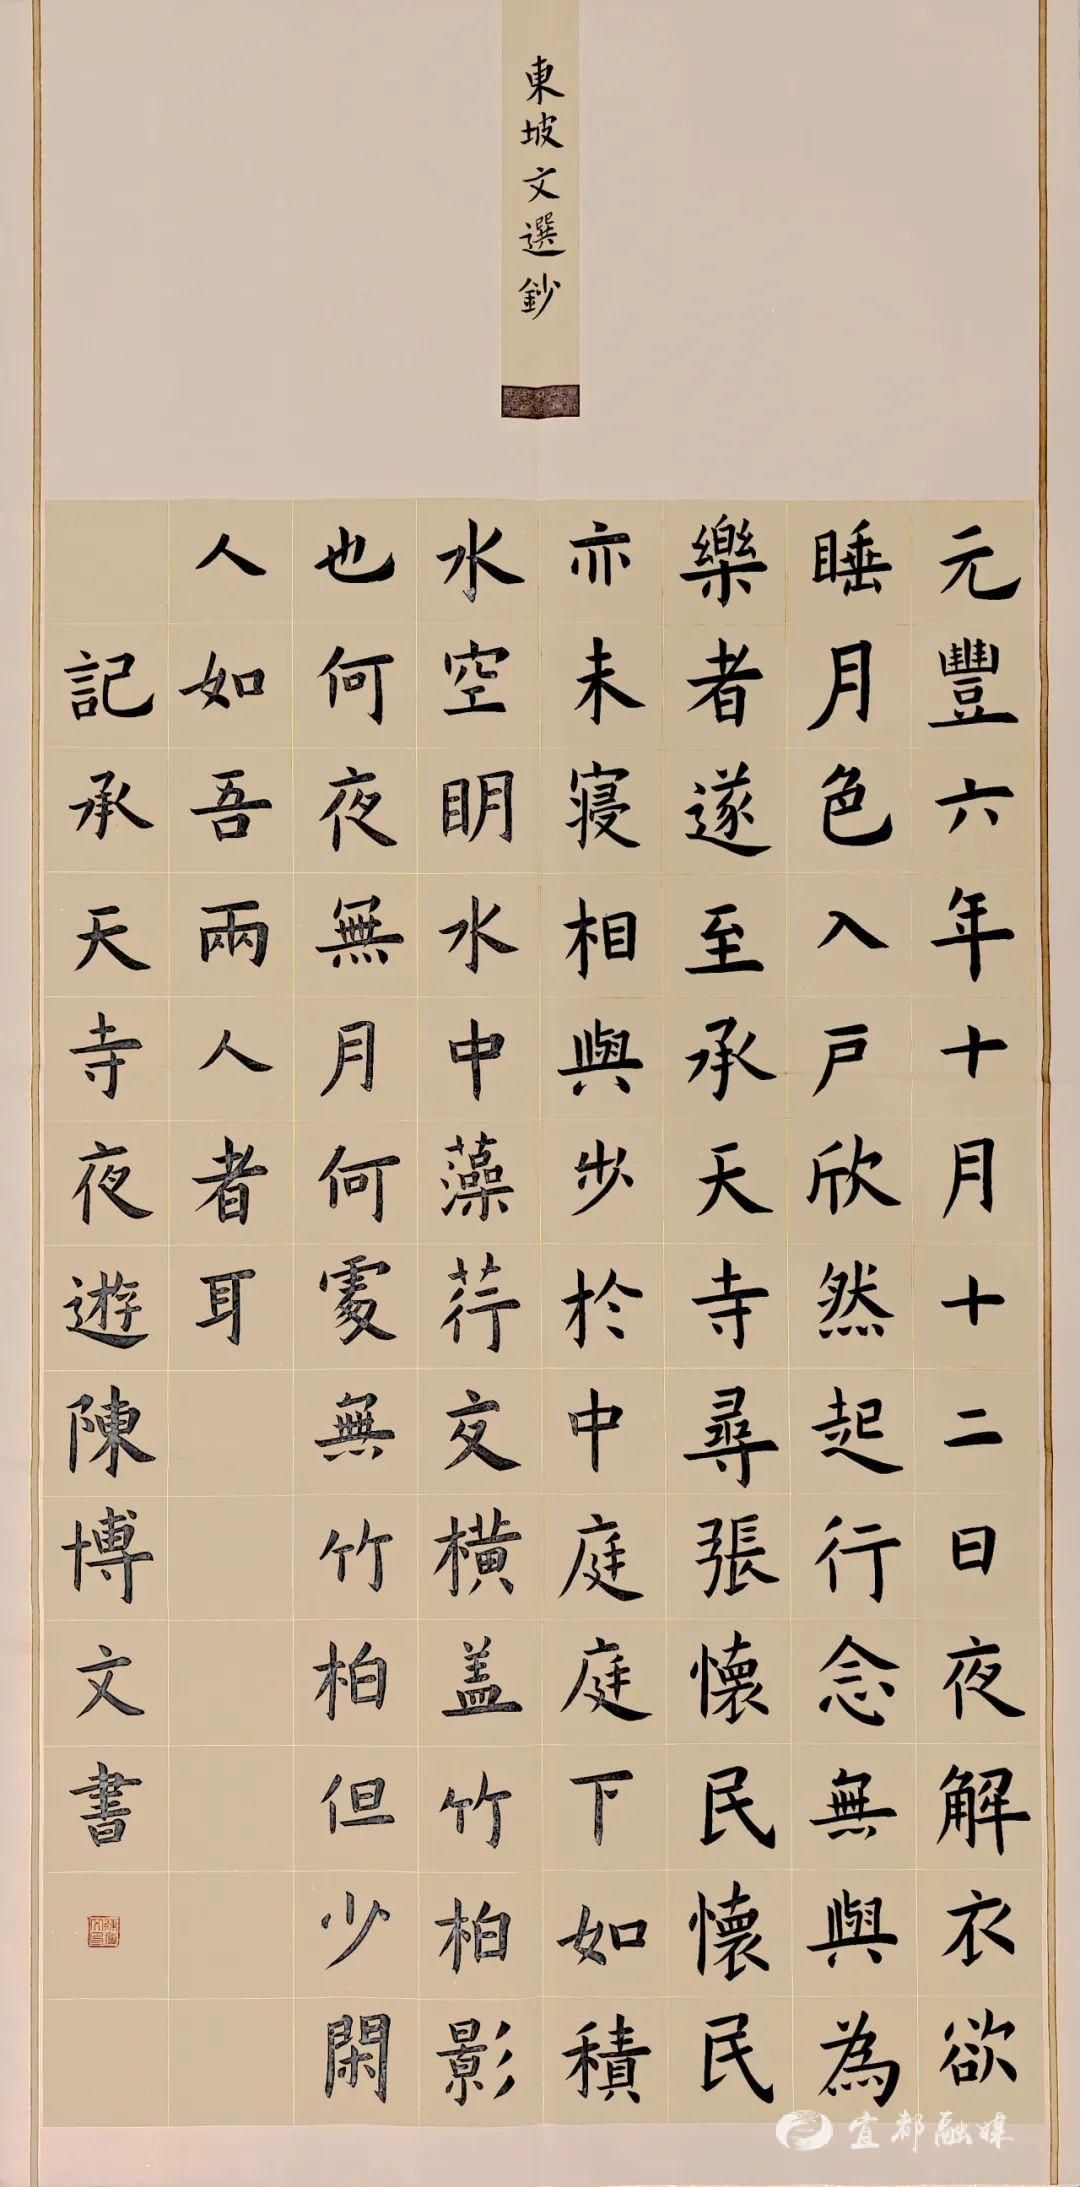 東坡文選鈔
元豐六年十月十二日夜解衣欲
睡月色入戶欣然起行念無與為
樂者遂至承天寺尋張懷民懷民
亦未寝相與步於中庭庭下如積
水空明水中藻荇交橫盖竹柏影
也何夜無月何處無竹柏但少閑
人如吾兩人者耳
記承天寺夜遊陳博文書
宜都融媒